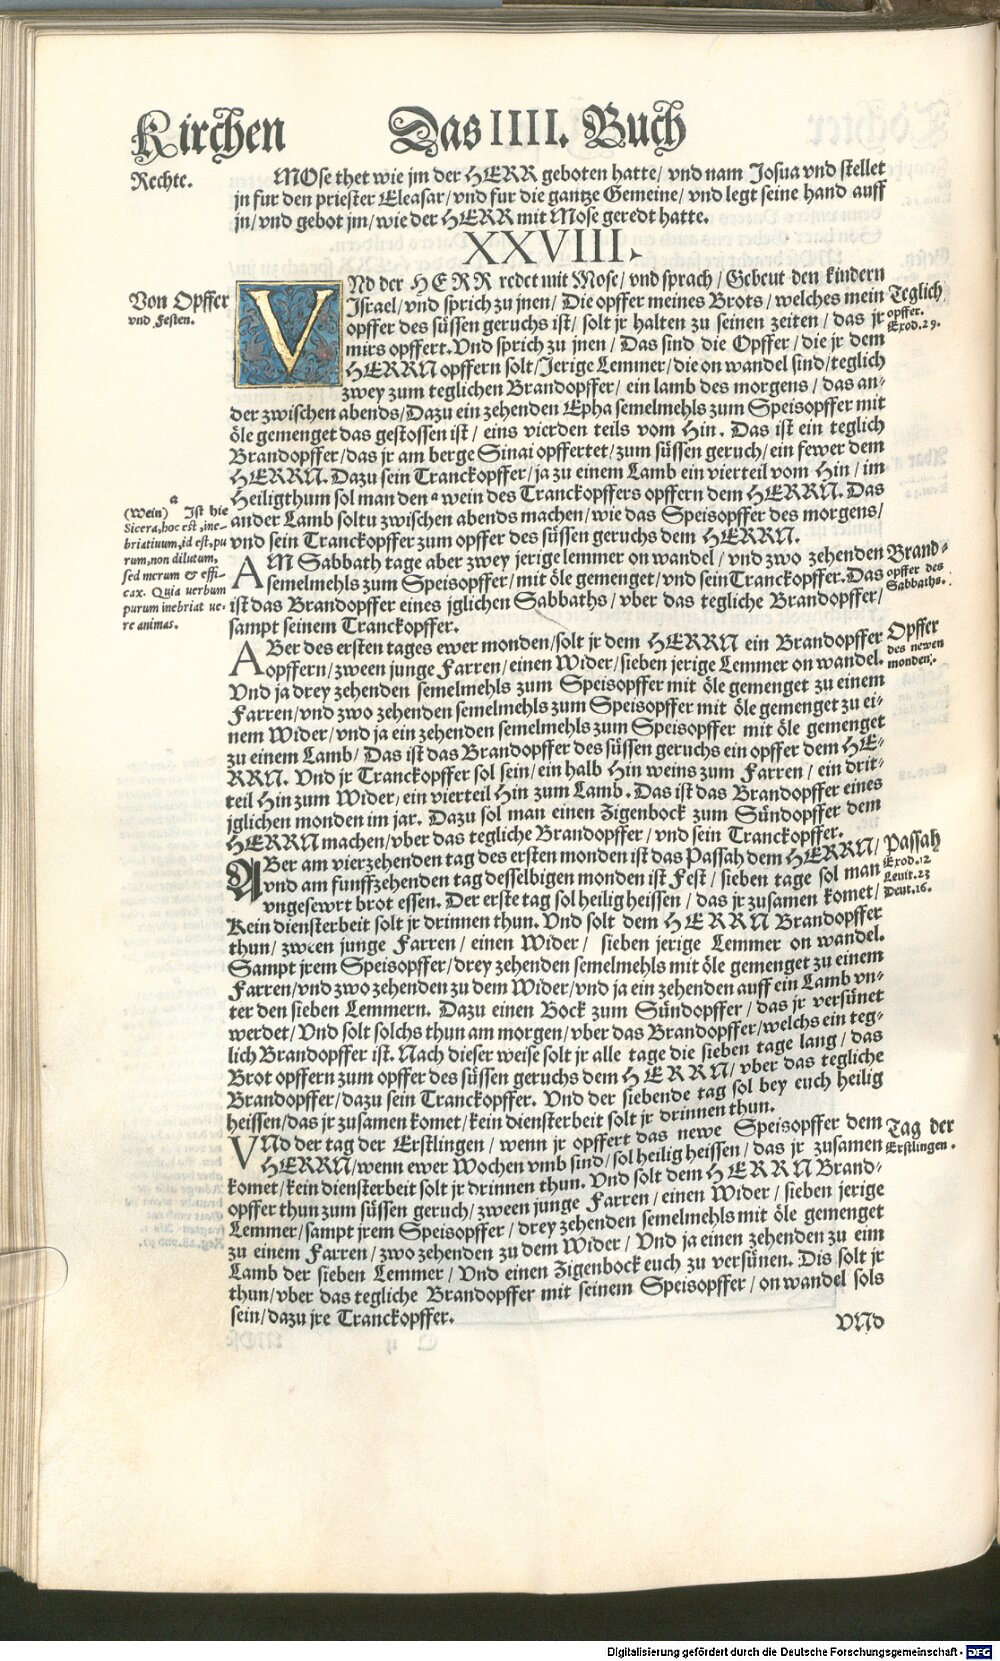 Kirchen
Das IIII. Buch
Rechte.
MOse thet wie jm der HERR geboten hatte/ vnd nam Josua vnd stellet
jn fur den priester Eleasar/ vnd fur die gantze Gemeine/ vnd legt seine hand auff
jn/ vnd gebot jm/ wie der HERR mit Mose geredt hatte.
XXVIII.
Von Opffer
vnd Festen.
VNd der HERR redet mit Mose/ vnd sprach/ Gebeut den kindern
Israel/ vnd sprich zu jnen/ Die opffer meines Brots/ welches mein
opffer des süssen geruchs ist/ solt jr halten zu seinen zeiten/ das jr
mirs opffert. Vnd sprich zu jnen/ Das sind die Opffer/ die jr dem
HERRN opffern solt/ Jerige Lemmer/ die on wandel sind/ teglich
zwey zum teglichen Brandopffer/ ein lamb des morgens/ das an-
der zwischen abends/ Dazu ein zehenden Epha semelmehls zum Speisopffer mit
öle gemenget das gestossen ist/ eins vierden teils vom Hin. Das ist ein teglich
Brandopffer/ das jr am berge Sinai opffertet/ zum süssen geruch/ ein fewer dem
HERRN. Dazu sein Tranckopffer/ ja zu einem Lamb ein vierteil vom Hin/ im
Heiligthum sol man den a wein des Tranckopffers opffern dem HERRN. Das
ander Lamb soltu zwischen abends machen/ wie das Speisopffer des morgens/
vnd sein Tranckopffer zum opffer des süssen geruchs dem HERRN.
Teglich
opffer.
Exod. 29.
a
(Wein) Ist hie
Sicera, hoc est, ine-
briatiuum, id est, pu
rum, non dilutum,
sed merum & effi-
cax. Quia uerbum
purum inebriat ue-
re animas.
AM Sabbath tage aber zwey jerige lemmer on wandel/ vnd zwo zehenden
semelmehls zum Speisopffer/ mit öle gemenget/ vnd sein Tranckopffer. Das
ist das Brandopffer eines jglichen Sabbaths/ vber das tegliche Brandopffer/
sampt seinem Tranckopffer.
Brand-
opffer des
Sabbaths.
ABer des ersten tages ewer monden/ solt jr dem HERRN ein Brandopffer
opffern/ zween junge Farren/ einen Wider/ sieben jerige Lemmer on wandel.
Vnd ja drey zehenden semelmehls zum Speisopffer mit öle gemenget zu einem
Farren/ vnd zwo zehenden semelmehls zum Speisopffer mit öle gemenget zu ei-
nem Wider/ vnd ja ein zehenden semelmehls zum Speisopffer mit öle gemenget
zu einem Lamb/ Das ist das Brandopffer des süssen geruchs ein opffer dem HE-
RRN. Vnd jr Tranckopffer sol sein/ ein halb Hin weins zum Farren/ ein drit-
teil Hin zum Wider/ ein vierteil Hin zum Lamb. Das ist das Brandopffer eines
jglichen monden im jar. Dazu sol man einen Zigenbock zum Sündopffer dem
HERRN machen/ vber das tegliche Brandopffer/ vnd sein Tranckopffer.
Opffer
des newen
monden.
ABer am vierzehenden tag des ersten monden ist das Passah dem HERRN/
vnd am funffzehenden tag desselbigen monden ist Fest/ sieben tage sol man
vngesewrt brot essen. Der erste tag sol heilig heissen/ das jr zusamen komet/
Kein diensterbeit solt jr drinnen thun. Vnd solt dem HERRN Brandopffer
thun/ zween junge Farren/ einen Wider/ sieben jerige Lemmer on wandel.
Sampt jrem Speisopffer/ drey zehenden semelmehls mit öle gemenget zu einem
Farren/ vnd zwo zehenden zu dem Wider/ vnd ja ein zehenden auff ein Lamb vn-
ter den sieben Lemmern. Dazu einen Bock zum Sündopffer/ das jr versünet
werdet/ Vnd solt solchs thun am morgen/ vber das Brandopffer/ welchs ein teg-
lich Brandopffer ist. Nach dieser weise solt jr alle tage die sieben tage lang/ das
Brot opffern zum opffer des süssen geruchs dem HERRN/ vber das tegliche
Brandopffer/ dazu sein Tranckopffer. Vnd der siebende tag sol bey euch heilig
heissen/ das jr zusamen komet/ kein diensterbeit solt jr drinnen thun.
Passah
Exod. 12
Leuit. 23
Deut. 16.
VNd der tag der Erstlingen/ wenn jr opffert das newe Speisopffer dem
HERRN/ wenn ewer Wochen vmb sind/ sol heilig heissen/ das jr zusamen
komet/ kein diensterbeit solt jr drinnen thun. Vnd solt dem HERRN Brand-
opffer thun zum süssen geruch/ zween junge Farren/ einen Wider/ sieben jerige
Lemmer/ sampt jrem Speisopffer/ drey zehenden semelmehls mit öle gemenget
zu einem Farren/ zwo zehenden zu dem Wider/ Vnd ja einen zehenden zu eim
Lamb der sieben Lemmer/ Vnd einen Zigenbock euch zu versünen. Dis solt jr
thun/ vber das tegliche Brandopffer mit seinem Speisopffer/ on wandel sols
sein/ dazu jre Tranckopffer.
Tag der
Erstlingen.
VNd
Digitalisierung gefördert durch die Deutsche Forschungsgemeinschaft - DFG